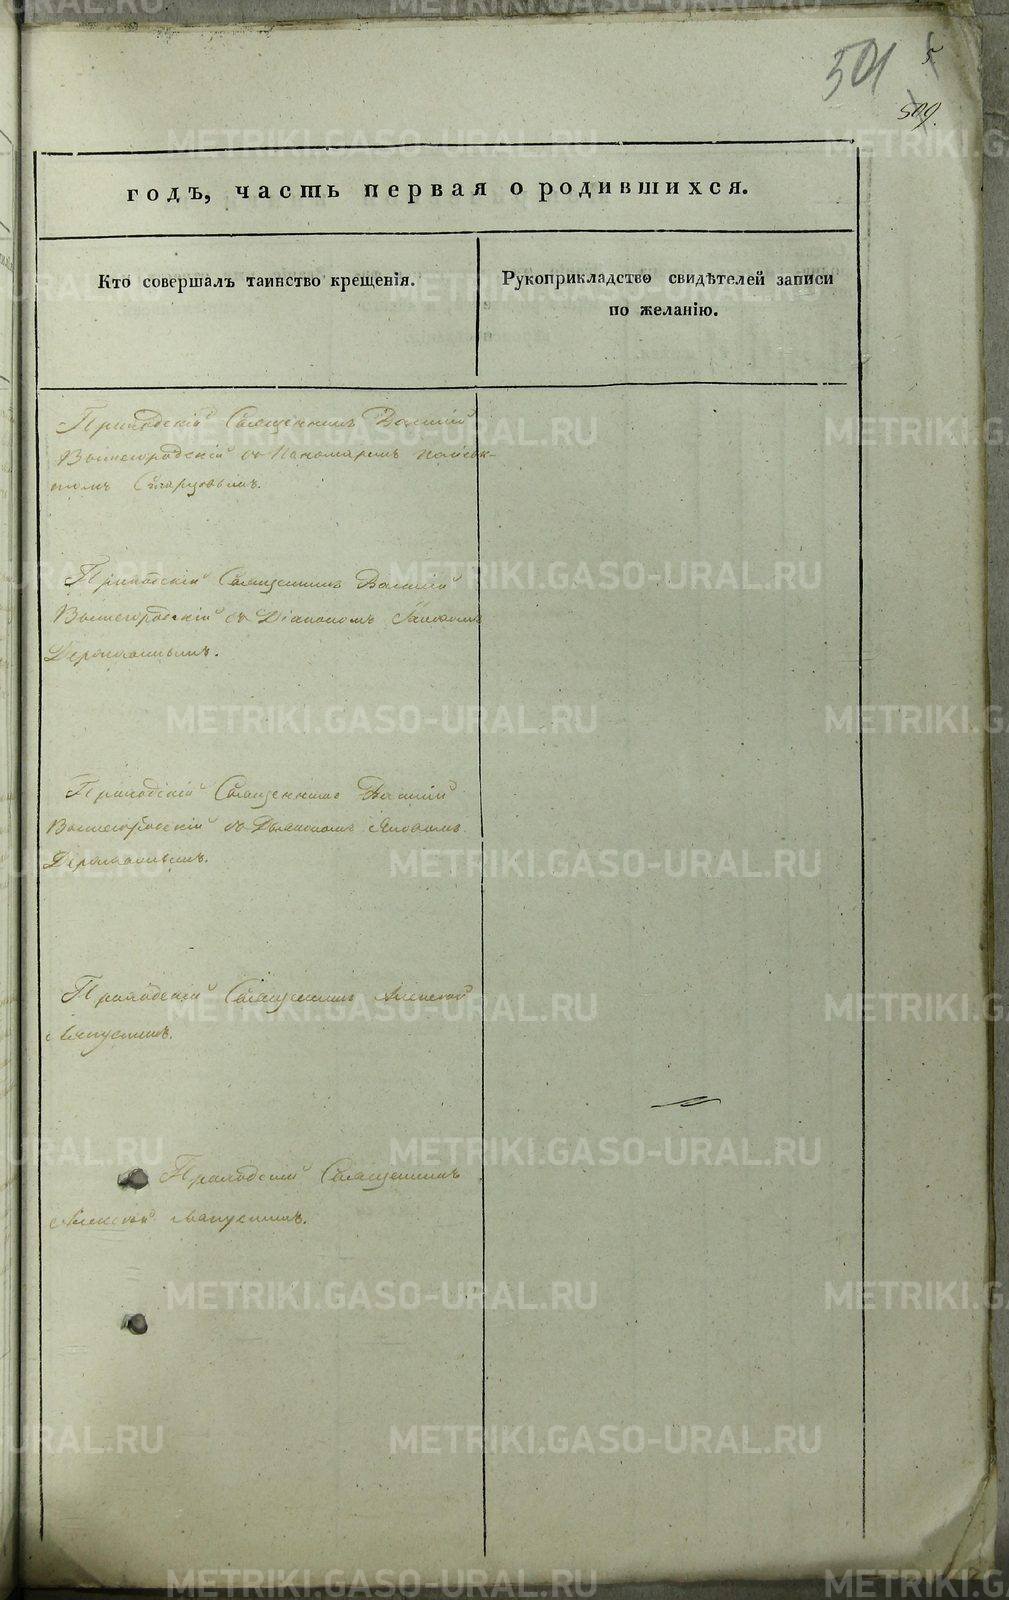 501
5
509.
годъ, часть первая о родившихся.
Кто совершалъ таинство крещенія.
Рукоприкладство свидѣтелей записи
по желанію.
Приходскій Священникъ Василій
Вышегородскій съ Пономаремъ
Старцовымъ.
Приходскій Священникъ Василій
Вышегородскій съ Діакономъ Іаковомъ
Приходскій Священникъ Василій
Вышегородскій съ Діакономъ Яковомъ
Приходскій Священникъ Алексей
Лапустинъ.
Приходскій Священникъ
Алексей Лапустинъ.
METRIKI.GASO-URAL.RU